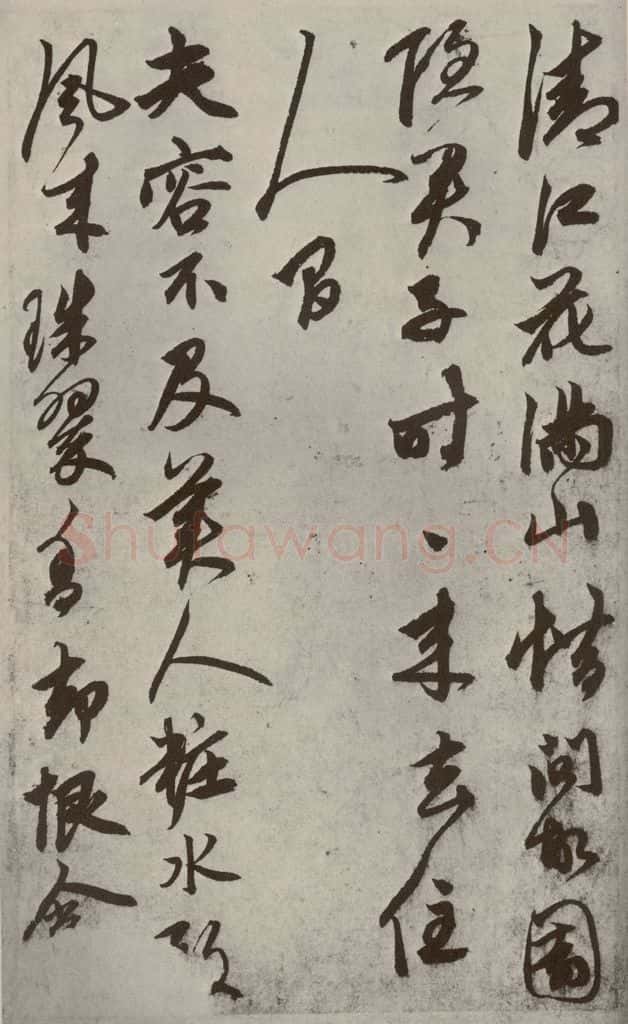 清江花滿山惜問故園
隱君子時、來去住
人間
夫容不及美人粧水殿
風來珠翠香却恨含
Shufawang.CN